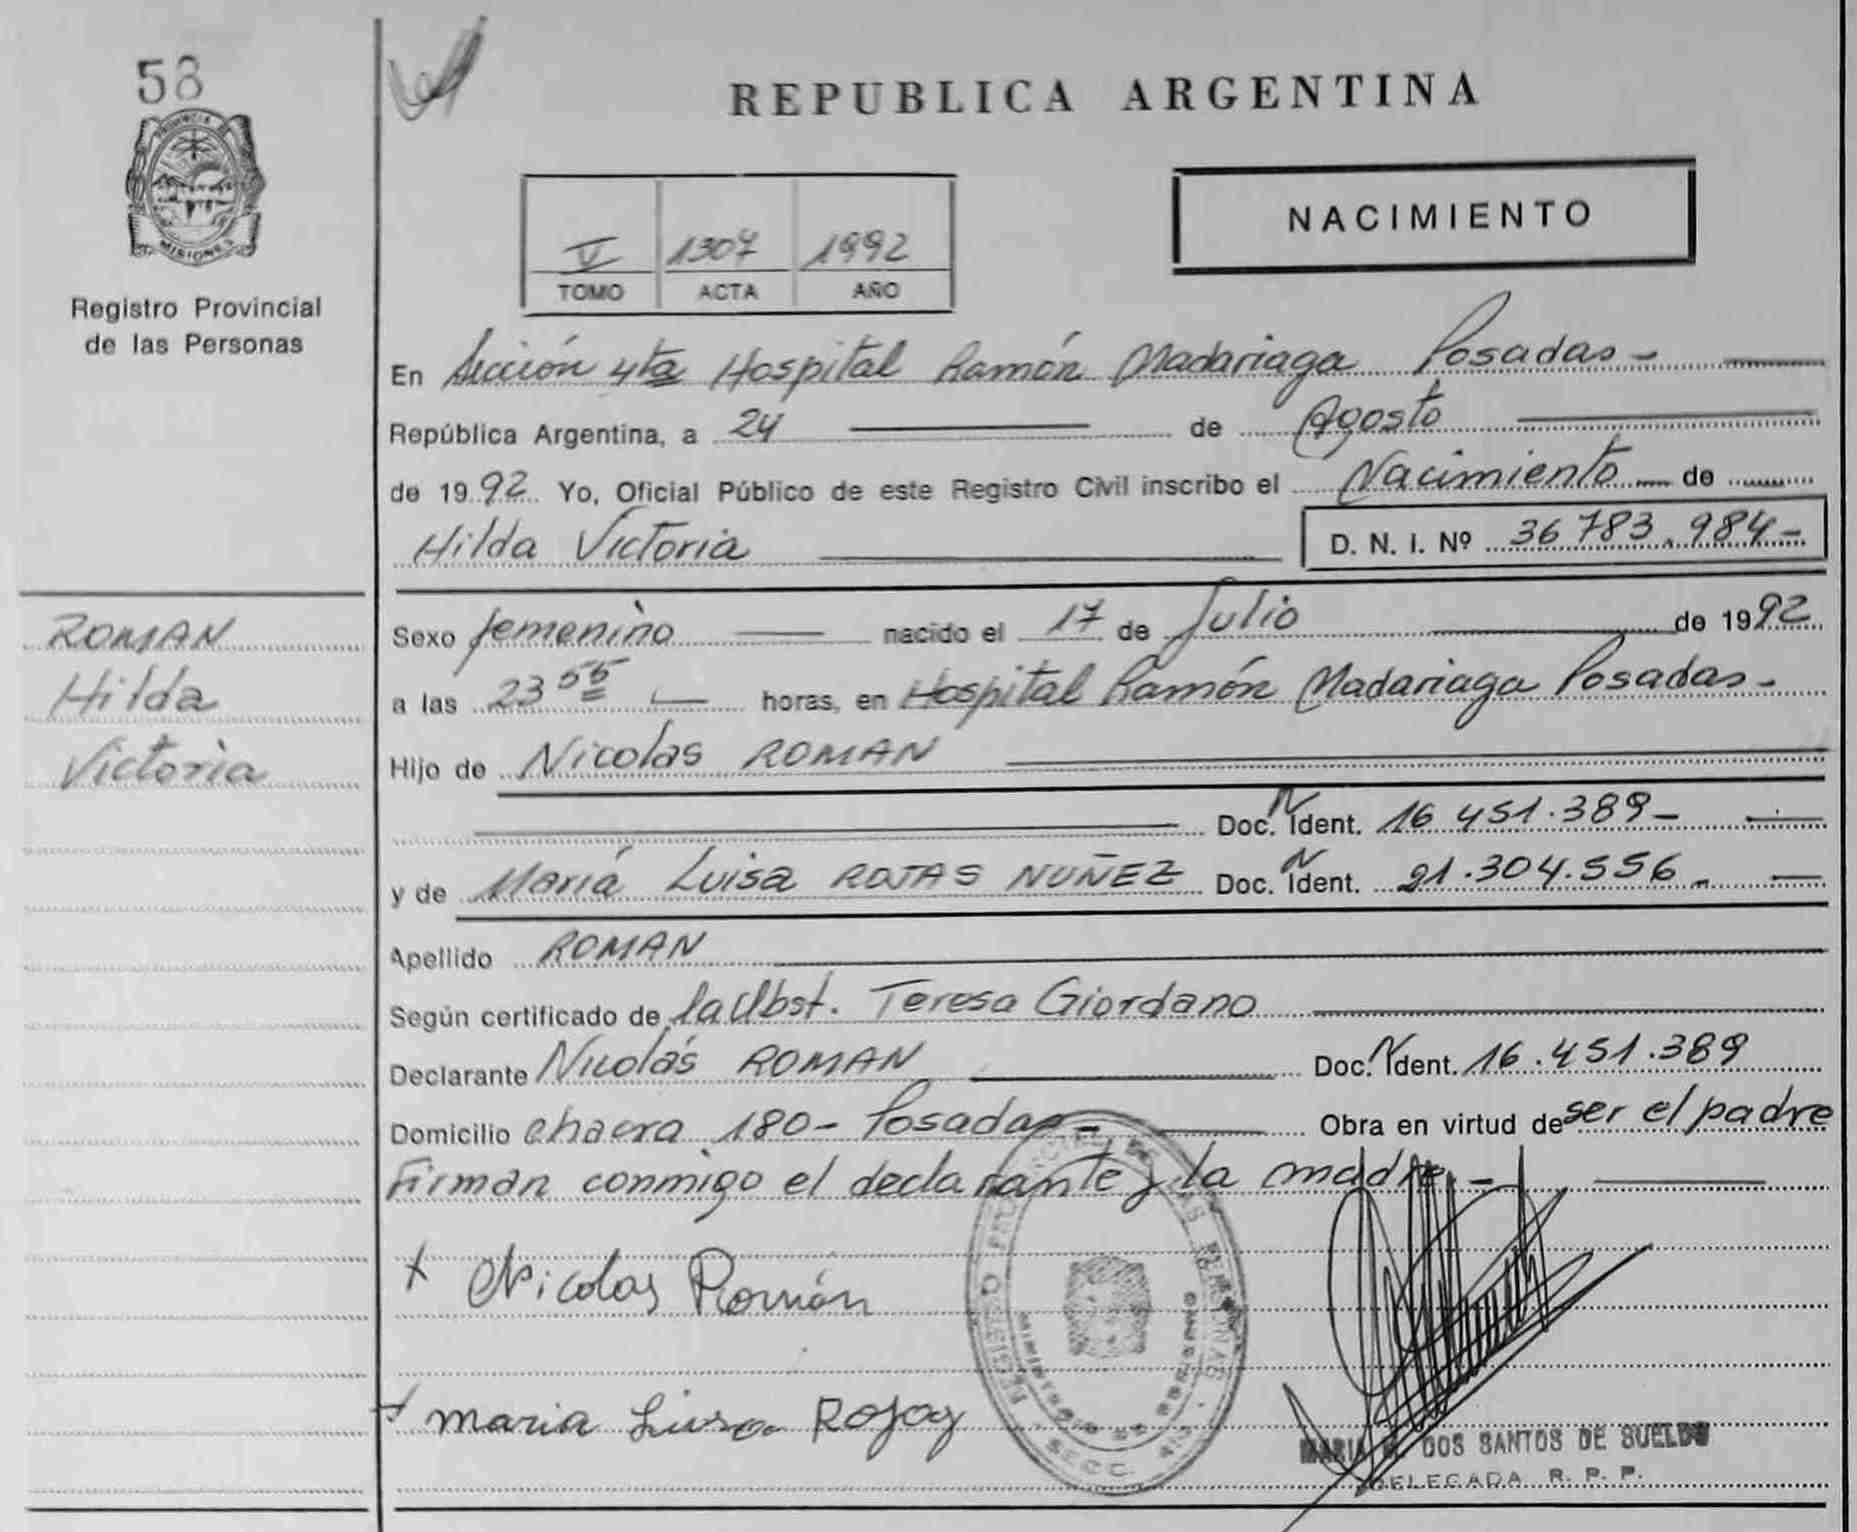 58
PROVINCIA DE
MISIONES
Registro Provincial
de las Personas
REPUBLICA ARGENTINA
V 1307 1992
TOMO ACTA AÑO
NACIMIENTO
En Sección 4ta Hospital Ramón Madariaga Posadas -
República Argentina, a 24 de Agosto
de 1992 Yo, Oficial Público de este Registro Civil inscribo el Nacimiento de
Hilda Victoria D. N. I. Nº 36 783.984-
ROMAN
Hilda
Victoria
Sexo femenino nacido el 17 de Julio de 1992
a las 23 55 horas, en Hospital Ramón Madariaga Posadas-
Hijo de Nicolas ROMAN
Doc. N Ident. 16 451.389-
y de María Luisa ROJAS NUÑEZ Doc. N Ident. 21.304.556-
Apellido ROMAN
Según certificado de la Obst. Teresa Giordano
Declarante Nicolás ROMAN Doc. N Ident. 16.451.389
Domicilio chacra 180- Posadas- Obra en virtud de ser el padre
Firman conmigo el declarante y la madre-
x Nicolas Román
REGISTRO PROVINCIAL DE LAS PERSONAS
MINISTERIO DE GOBIERNO
SECC. 4ta.
x maria Luisa Rojas
MARIA DOS SANTOS DE SUELDO
DELEGADA R. P. P.